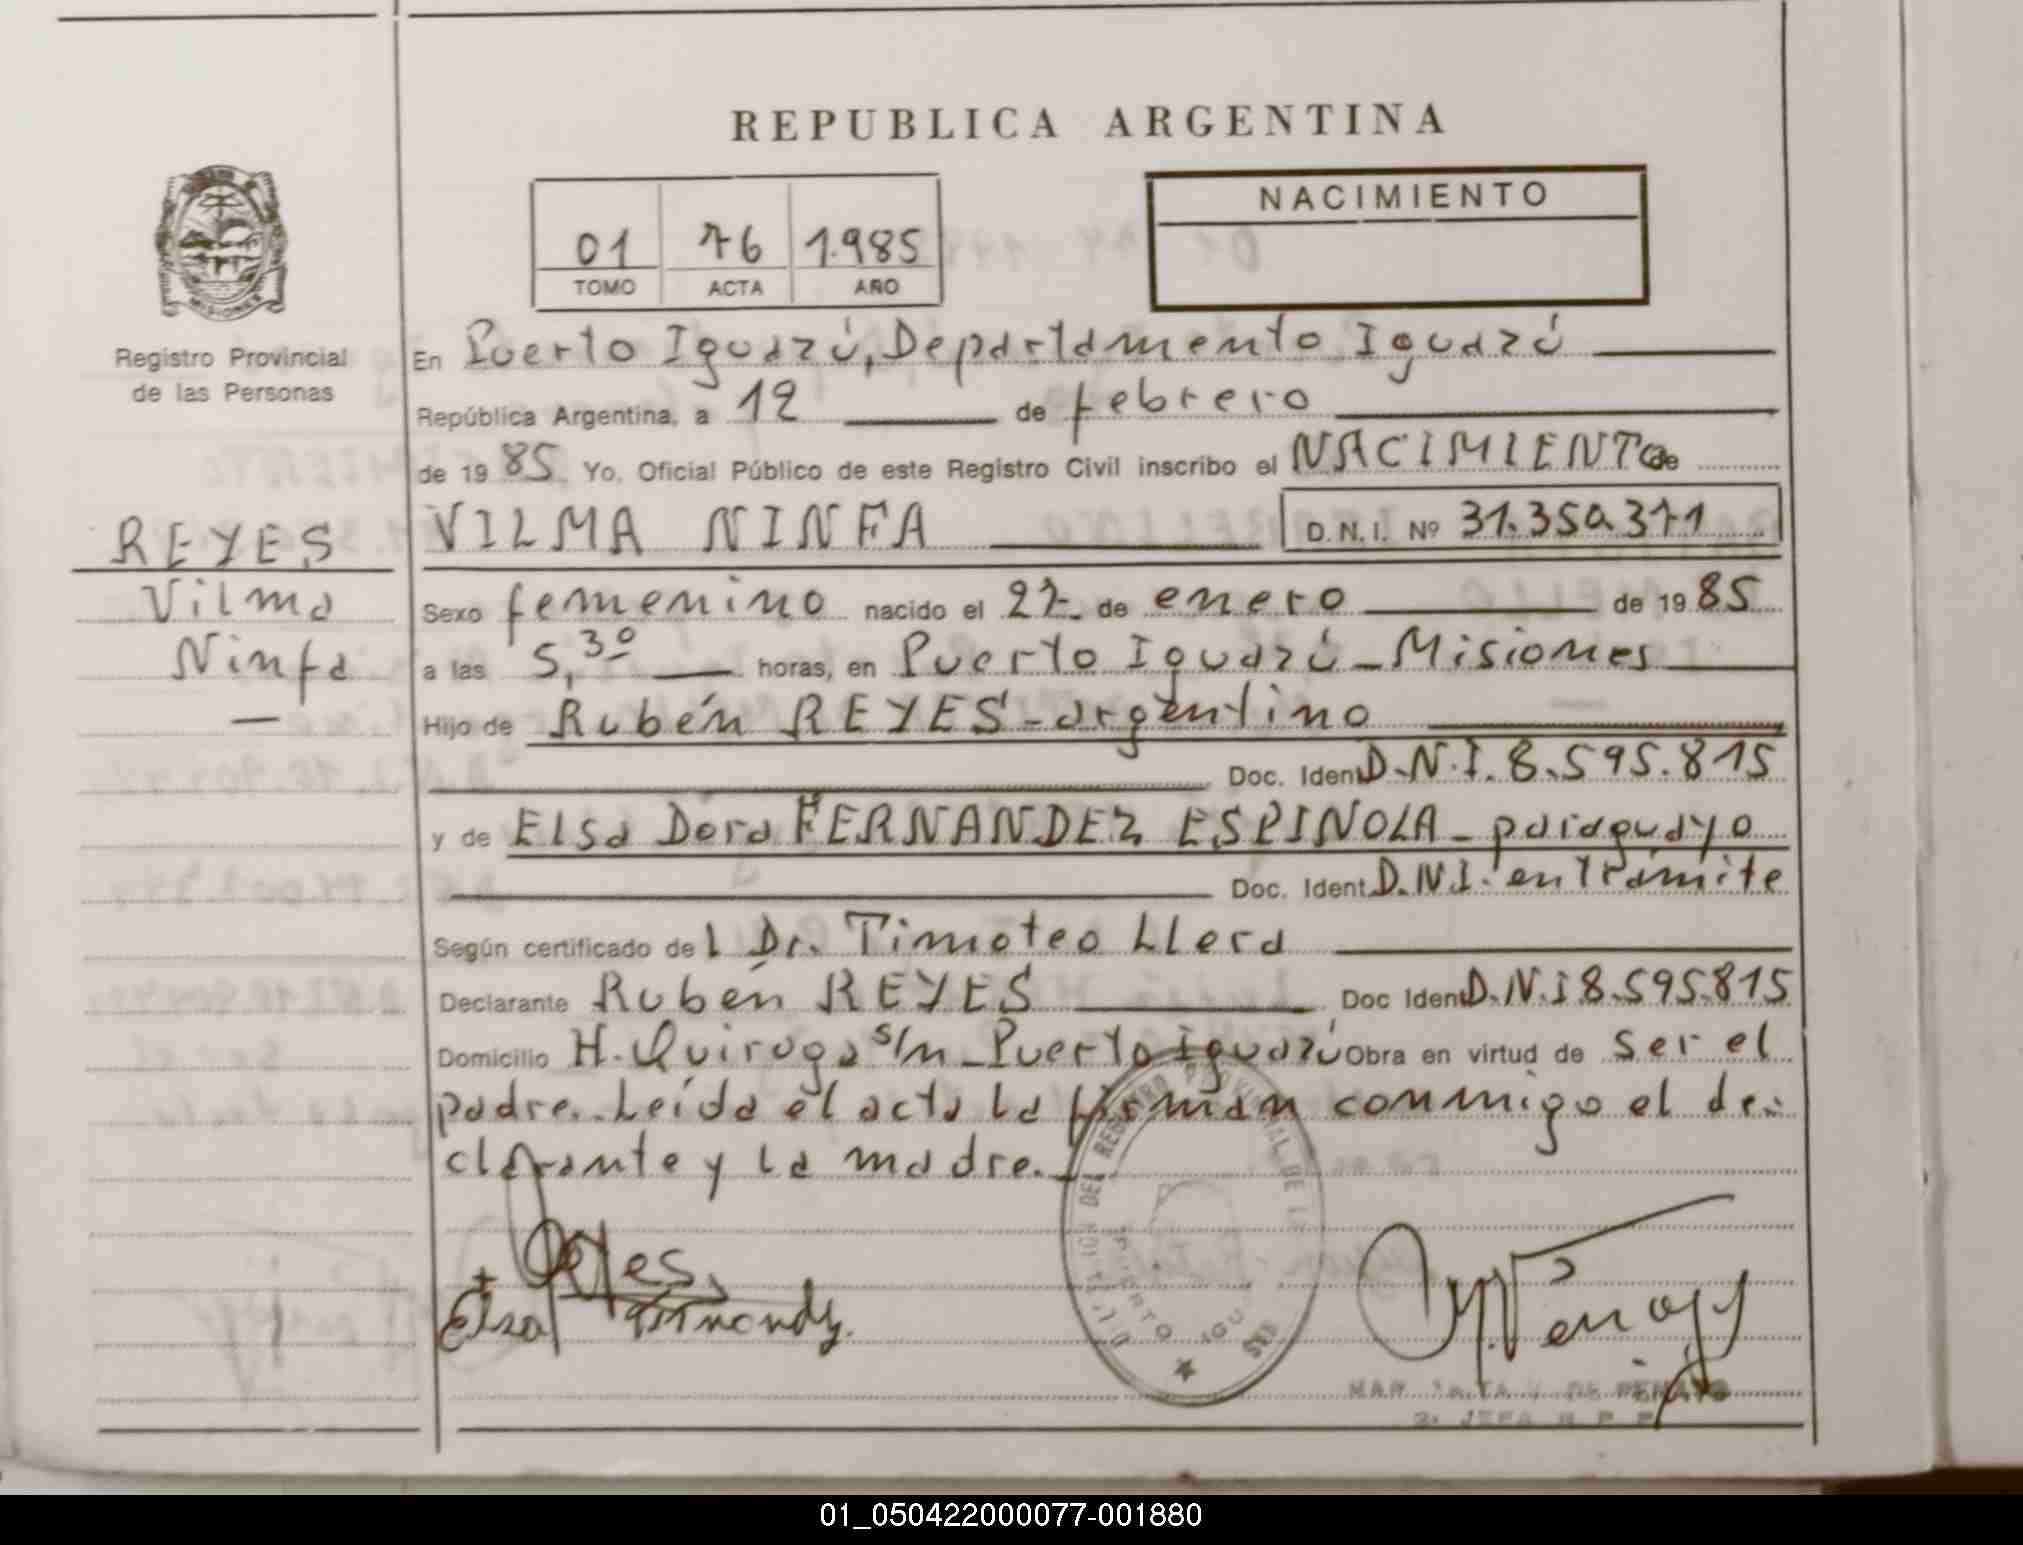 REPUBLICA ARGENTINA
NACIMIENTO
01 76 1.985
TOMO ACTA AÑO
MISIONES
Registro Provincial
de las Personas
En Puerto Iguazú, Departamento Iguazú
República Argentina, a 12 de febrero
de 19 85 Yo, Oficial Público de este Registro Civil inscribo el NACIMIENTO de
REYES
Vilma
Ninfa
VILMA NINFA D.N.I. Nº 31.350.371
Sexo femenino nacido el 27 de enero de 19 85
a las 5,30 horas, en Puerto Iguazú - Misiones
Hijo de Rubén REYES - argentino
Doc. Ident. D.N.I. 8.595.815
y de Elsa Dora FERNANDEZ ESPINOLA - paraguayo
Doc. Ident. D.N.I. en trámite
Según certificado de l Dr. Timoteo Llera
Declarante Rubén REYES Doc Ident D.N.I 8.595.815
Domicilio H. Quiroga s/n - Puerto Iguazú Obra en virtud de ser el
padre. Leída el acta la firman conmigo el de-
clarante y la madre.
Reyes
Elsa
DEL REGISTRO PROVINCIAL DE
PUERTO IGU
DE PENAYO
JEFA R P P
01_050422000077-001880